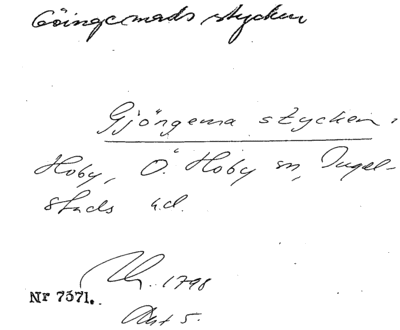 Göingemads stycken
Gjöngema stycken,
Hoby, Ö. Hoby sn, Ingel-
stads hd.
1798
Nr 7371.
Akt 5.